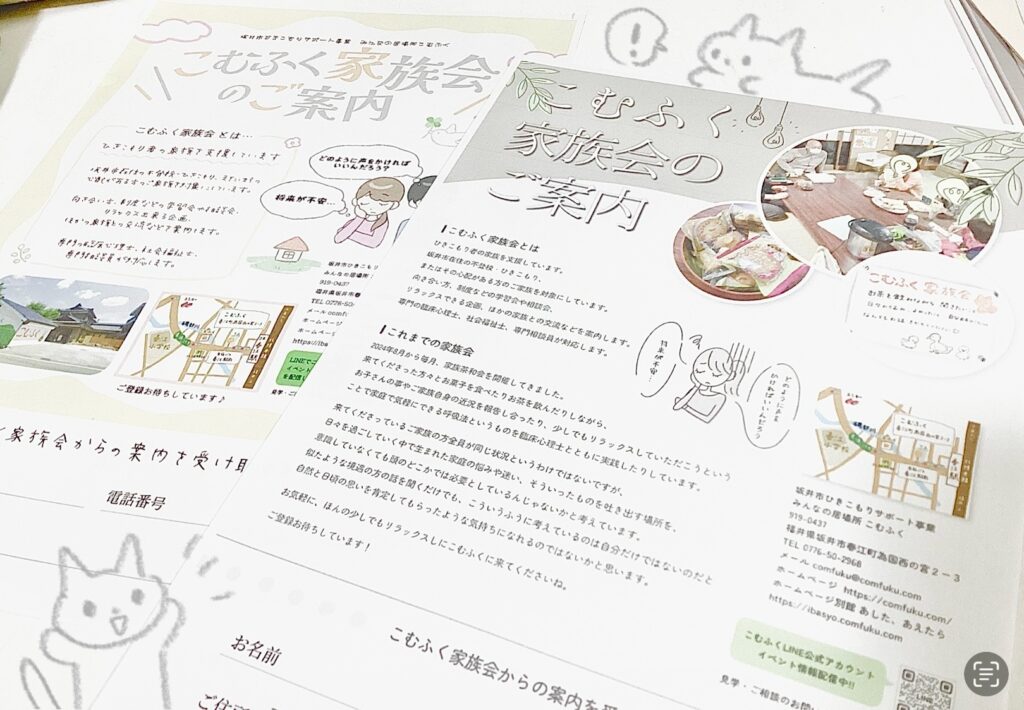 坂井市ひきこもりサポート事業 みんなの居場所こむふく
こむふく家族会
のご案内
こむふく家族会とは…
ひきこもり者の家族を支援しています
向き合い方、制度などの学習会や相談会、
リラックス出来る企画、
ほかの家族との交流などを案内します。
専門の臨床心理士、社会福祉士、
専門相談員が対応します。
どのように声をかければ
いいんだろう?
将来が不安…
こむふく
春江
小学校
ご登録お待ちしています♪
坂井市ひきこ
みんなの居場
919-0437
福井県坂井市
TEL 0776-50
メール comf
ホームページ
ホームペー
https://iba
LINEでご
イベント
を配信し
見学・ご
家族会からの案内を受け取
電話番号
こむふく
家族会の
ご案内
こむふく家族会とは
ひきこもり者の家族を支援しています。
坂井市在住の不登校・ひきこもり、
またはその心配がある方のご家族を対象にしています。
向き合い方、制度などの学習会や相談会、
リラックスできる企画、ほかの家族との交流などを案内します。
専門の臨床心理士、社会福祉士、専門相談員が対応します。
これまでの家族会
2024年8月から毎月、家族茶和会を開催してきました。
来てくださった方々とお菓子を食べたりお茶を飲んだりしながら、
お子さんの事やご家族自身の近況を報告し合ったり、少しでもリラックスしていただこうという
ことで家庭で気軽にできる呼吸法というものを臨床心理士とともに実践したりしています。
来てくださっているご家族の方全員が同じ状況というわけではないですが、
日々を過ごしていく中で生まれた家庭の悩みや迷い、そういったものを吐き出す場所を、
意識していなくても頭のどこかでは必要としているんじゃないかと考えています。
似たような境遇の方の話を聞くだけでも、こういうふうに考えているのは自分だけではないのだと
自然と日頃の思いを肯定してもらったような気持ちになれるのではないかと思います。
お気軽に、ほんの少しでもリラックスしにこむふくに来てくださいね。
ご登録お待ちしています!
将来が不安…
どのように声を
かければいいんだろう
こむふく家族会
春江
小学校
坂井市ひきこもりサポート事業
みんなの居場所 こむふく
919-0437
福井県坂井市春江町為国西の宮2-3
TEL 0776-50-2968
メール comfuku@comfuku.com
ホームページ https://comfuku.com/
ホームページ別館 あした、あえたら
https://ibasyo.comfuku.com
こむふくLINE公式アカウント
イベント情報配信中!!
LINE
見学・ご相談のお問い
こむふく家族会からの案内を受
お名前
ご住